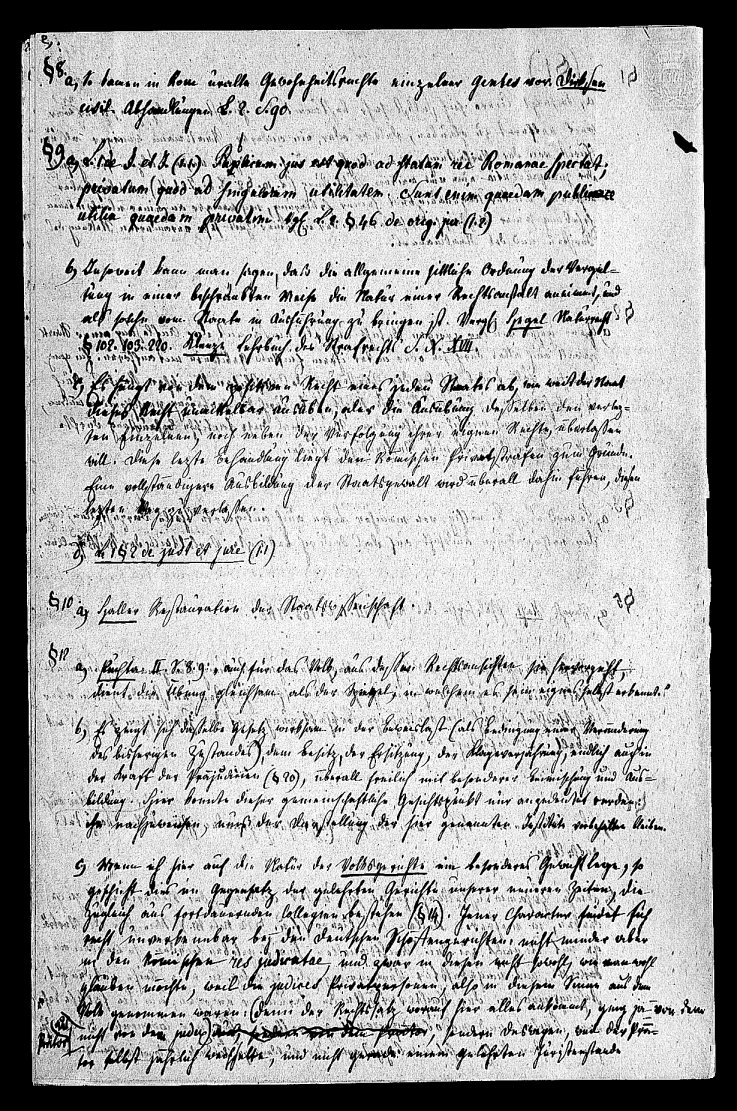 § 8. a, So kamen in Rom uralte Gewohnheitsrechte einzelner Gentes vor. Dirksen
civil. Abhandlungen B. 2. S. 90
§ 9 a, L. 1 de J. et J. (1.1.) Publicum jus est quod ad statum rei Romanae spectat,
privatum quod ad singulorum utilitatem. Sunt enim quaedam publice
utilia quaedam privatim. vgl. L. 2. § 46 de orig. jur. (1.2)
b, Insoweit kann man sagen, daß die allgemeine sittliche Ordnung der Vergel-
tung in einer beschränkten Weise die Natur einer Rechtsanstalt annimmt, und
als solche vom Staate in Ausführung zu bringen ist. Vergl. Hegel Naturrecht
§ 102. 103. 220. Klenze Lehrbuch des Strafrechts S. X. XVII
c, Es hängt von dem positiven Recht eines jeden Staates ab, wie weit der Staat
dieses Recht unmittelbar ausüben, oder die Ausübung desselben den verletz-
ten Einzelnen, noch neben der Verfolgung ihrer eignen Rechte, überlassen
will. Diese letzte Behandlung liegt den Römischen Privatstrafen zum Grunde.
Eine vollständigere Ausbildung der Staatsgewalt wird überall dahin führen, diesen
letzten Weg zu verlassen.
d, L. 1 § 2 de just. et jure (1.1)
§ 10 a, Haller Restauration der Staatswissenschaft.
§ 12
a, Puchta II S. 8. 9: auch für das Volk, aus dessen Rechtsansichten sie hervorgeht,
dient die Übung gleichsam als der Spiegel, in welchem es sein eignes Selbst erkennt."
b, Es zeigt sich dasselbe Gesetz wirksam in der Beweislast (als Bedingung einer Veränderung
des bisherigen Zustandes), dem Besitz, der Ersitzung, der Klageverjährung, endlich auch in
der Kraft der Präjudicien (§ 20), überall freilich mit besonderer Beimischung und Aus-
bildung. Hier konnte dieser gemeinschaftliche Gesichtspunkt nur angedeutet werden;
ihn nachzuweisen, muß der Darstellung der hier genannten Institute vorbehalten bleiben.
c, Wenn ich hier auf die Natur der Volksgerichte ein besonderes Gewicht lege, so
geschieht dies im Gegensatz der gelehrten Gerichte unserer neueren Zeiten, die
zugleich aus fortdauernden Collegien bestehen (§ 14). Jener Charakter findet sich
recht unverkennbar bey den Deutschen Schöffengerichten: nicht minder aber
in den Römischen res judicatae, und zwar in diesen nicht sowohl, wie man wohl
glauben möchte, weil die judices Privatpersonen, also in diesem Sinne aus dem
Volk genommen waren (denn der Rechtssatz, worauf hier alles ankommt, ging ja von dem
Prätor nicht von dem judex aus), sondern deswegen, weil der Prä-
tor selbst jährlich wechselte, und nicht gerade einem gelehrten Juristenstande